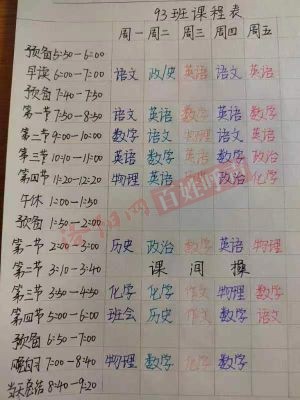 93班课程表
周一 周二 周三 周四 周五
预备 5:50-6:00
早读 6:00-7:00 语文 政/史 英语 语文 英语
预备 7:40-7:50
第一节 7:50-8:50 语文 英语 英语 语文 英语
第二节 9:00-10:00 数学 语文 物理 英语 数学
第三节 10:10-11:00 英语 数学 数学 政治
第四节 11:20-12:20 物理 英语 政治 化学
午休 1:00-1:50
预备 1:50-2:00
第一节 2:00-3:00 历史 政治 数学 英语 物理
第二节 3:10-3:40 课间操
第三节 3:50-4:50 化学 化学 作文 物理 数学
第四节 5:00-6:00 班会 历史 作文 数学 语文
预备 6:50-7:00
晚自习 7:00-8:40 物理 数学 化学 数学
当天总结 8:40-9:20